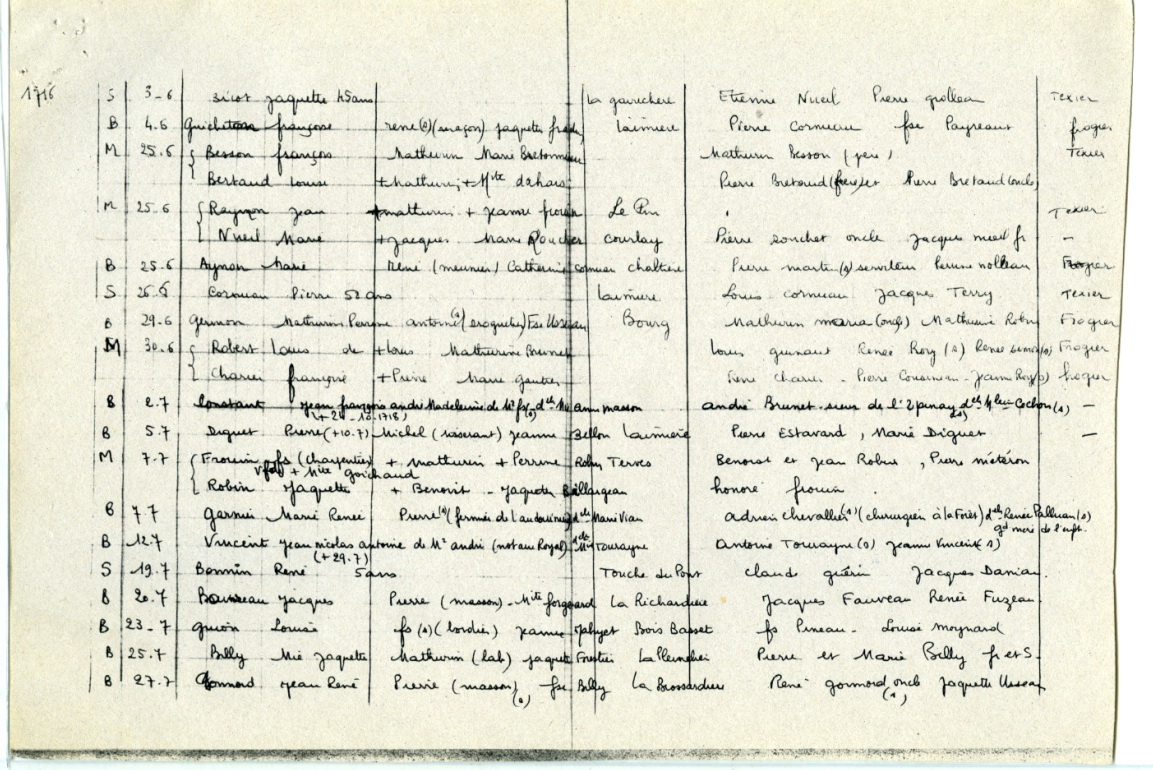 1716 S 3-6 sicot jaquette 45 ans La gavechere Etienne Nueil Pierre grolleau Texier
B 4.6 Guichetan françoise rené (s) jaquette Laimiere Pierre Cornuau fse Payreaut frogier
M 25.6 Besson françois Mathurin Marie Bretonneau Mathurin Besson (père) Texier
Bertaud Louise + Mathurin, + Mite dehais Pierre Bretaud (frère) et Pierre Bretaud (oncle)
M 25.6 Raymon jean + mathurin + jeanne frouin Le Pin Texier
Nueil Marie + jacques Marie Roucher courlay Pierre souchet oncle jacques nueil fr -
B 25.6 Aymon Marie René (meunier) Catherine cornuau chaltiere Pierre marte (s) serviteur Perrine nolleau Frogier
S 26.6 Cornuau Pierre 52 ans Laimiere Louis cornuau Jacques Terry Texier
B 29.6 Germon Mathurin Pierre antoine (s) Fse Usseau Bourg Mathurin maria (oncle) Mathurine Robin Frogier
M 30.6 Robert Louis de + Louis Mathurine Brunet Louis guinaut Renée Roy (s) Frogier
Charier françoise + Pierre Marie gautier René Charier - Pierre Cousineau - Jeanne Roy (s) frogier
B 2.7 Constant jean françois andré Madeleine de Mr fs (s) d'elle Mie anne masson andré Brunet sieur de l'Epinay (s) d'elle Cochon (s) -
(+ 24-10.1718)
B 5.7 Diguet Pierre (+10.7) Michel jeanne Bellon Laimiere Pierre Estavard, Marie Diguet -
M 7.7 Frouin fs (Charpentier) + Mathurin + Perrine Robin Terves Benoist et Jean Robin, Pierre météron
vf de + Mite guichaud
Robin Jaquette + Benoist - Jaquette Baillargeau honoré frouin
B 7 7 garnier Marie Renée Pierre (s) d'elle Marie Vian adrien chevallier (s) (chirurgien à la Forêt) d'elle Renée Palluau (s)
gd mère de l'enft.
B 12.7 Vincent jean nicolas antoine de Mr andré (notaire Royal) Tourayne antoine Tourayne (s) jeanne Vincent (s)
(+ 29.7)
S 19.7 Bonnin René 5 ans Touche du Pont claude guérin Jacques Danian
B 20.7 Bousseau Jacques Pierre (masson) - Mite forgeard La Richardiere Jacques Fauveau Renée Fuzeau
B 23-7 guion Louise fs (s) (bordier) jeanne Bois Basset fs Pineau - Louise moynard
B 25.7 Billy Mie jaquette Mathurin (lab) jaquette Forestier Pierre et Marie Billy fr et S.
B 27.7 Gonnord jean René Pierre (masson) (s) fse Billy La Brossardiere René gonnord oncle (s) jaquette Usseau